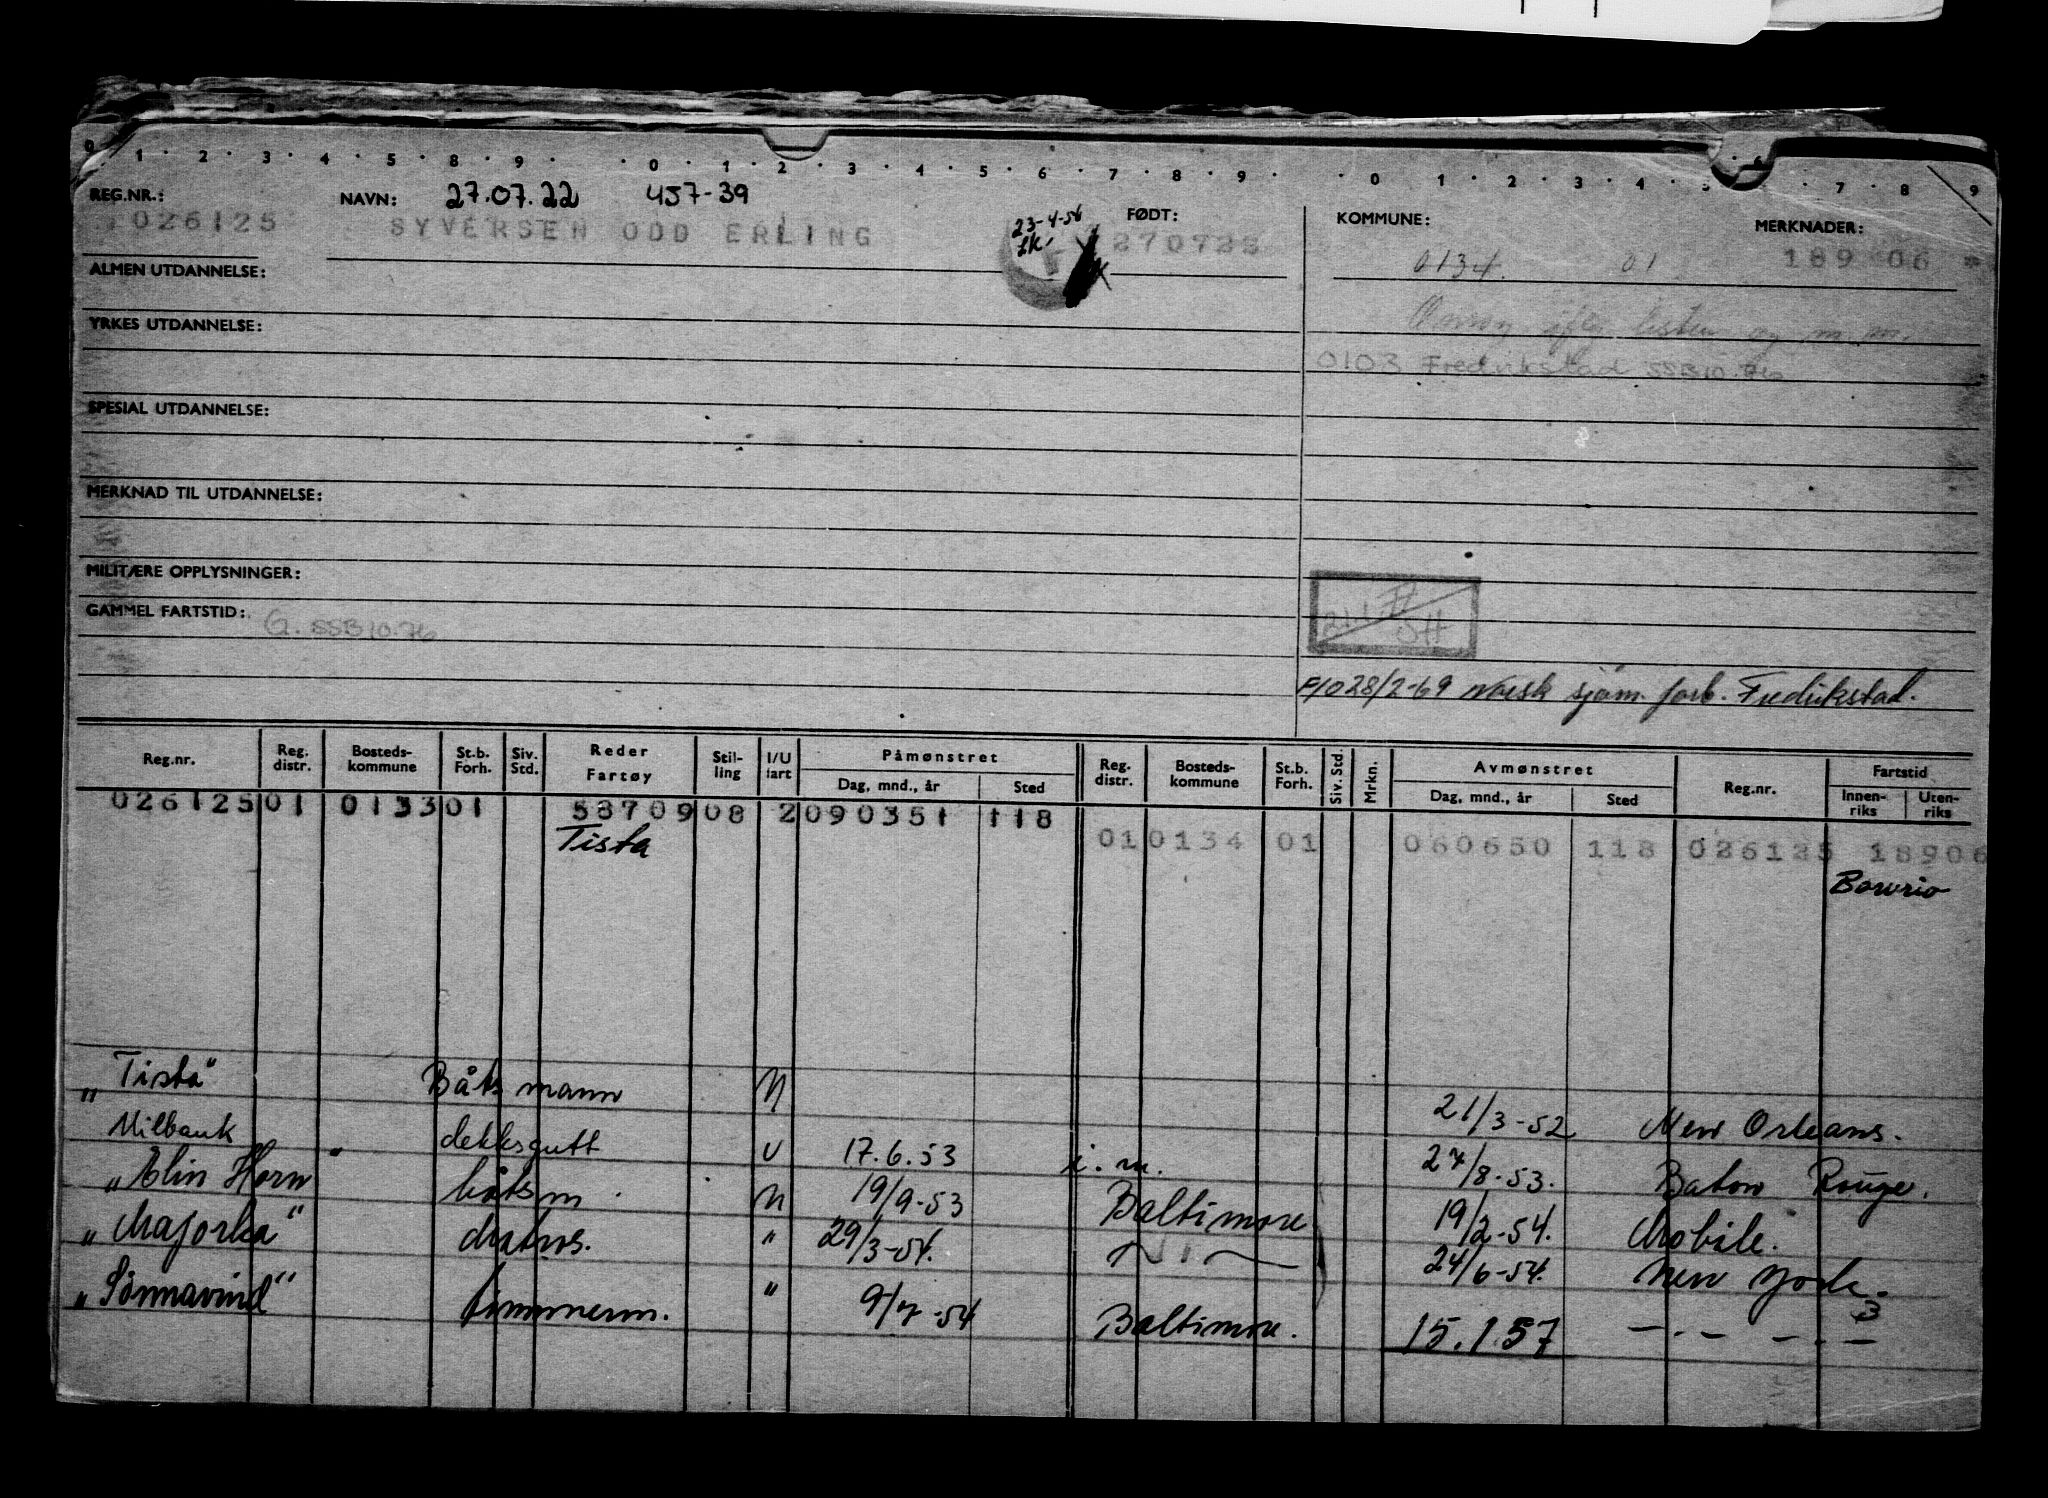 0 1 2 3 4 5 8 9 0 1 2 3 4 5 6 7 8 9 0 1 2 3 4 5 6 7 8 9
REG.NR.: NAVN: 27.07.22 457-39 FØDT: KOMMUNE: MERKNADER:
026125 SYVERSEN ODD ERLING 23-4-56 270722 0134 01 189 06
ALMEN UTDANNELSE:
YRKES UTDANNELSE:
0103 Fredrikstad SSB 10.76
SPESIAL UTDANNELSE:
MERKNAD TIL UTDANNELSE:
MILITÆRE OPPLYSNINGER:
GAMMEL FARTSTID: G. SSB 10.76
28/2-69 Norsk sjøm. forb. Fredrikstad.
Reg.nr. Reg. distr. Bosteds-kommune St.b. Forh. Siv. Std. Reder Fartøy Stil-ling I/U fart Påmønstret Dag, mnd., år Sted Reg. distr. Bosteds-kommune St.b. Forh. Siv. Std. Mrkn. Avmønstret Dag, mnd., år Sted Reg.nr. Fartstid Innen-riks Uten-riks
026125 01 0133 01 53709 08 2 090351 118
Tista 01 0134 01 060650 118 026125 18906
"Tista" Båtsmann N 21/3-52 New Orleans.
Milbank dekksgutt U 17.6.53 i.m. 24/8-53. Baton Rouge.
"Elin Horn" båtsm. N 19/9-53 Baltimore 19/2-54. Mobile.
"Majorka" matros. " 29/3-54. 24/6-54. New York.
"Sönnavind" tømmerm. " 9/7-54 Baltimore. 15.1.57 —.— —.—